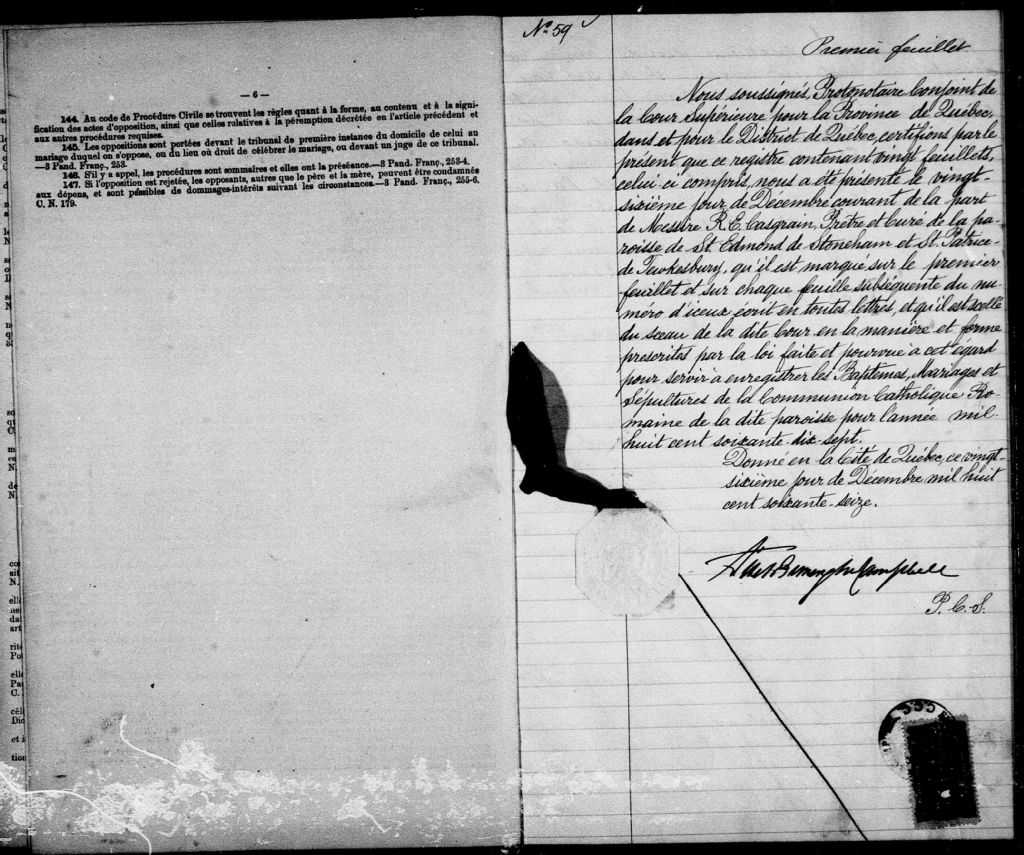 — 6 —
144. Au code de Procédure Civile se trouvent les règles quant à la forme, au contenu et à la signi-
fication des actes d'opposition, ainsi que celles relatives à la péremption décrétée en l'article précédent et
aux autres procédures requises.
145. Les oppositions sont portées devant le tribunal de première instance du domicile de celui au
mariage duquel on s'oppose, ou du lieu où droit de célébrer le mariage, ou devant un juge de ce tribunal.
—3 Pand. Franç., 253.
146. S'il y a appel, les procédures sont sommaires et elles ont la préséance.—3 Pand. Franç., 253-4.
147. Si l'opposition est rejetée, les opposants, autres que le père et la mère, peuvent être condamnés
aux dépens, et sont passibles de dommages-intérêts suivant les circonstances.—3 Pand. Franç., 255-6.
C. N. 179.
No. 59
Premier feuillet
Nous soussignés, Protonotaire Conjoint de
la Cour Supérieure pour la Province de Québec,
dans et pour le District de Québec, certifions par le
présent que ce registre contenant vingt feuillets,
celui ci compris, nous a été présenté le vingt-
sixième jour de Décembre courant de la part
de Messire R. E. Casgrain, Prêtre et Curé de la pa-
roisse de St. Edmond de Stoneham et St. Patrice
de Tewkesbury, qu'il est marqué sur le premier
feuillet et sur chaque feuille subséquente du nu-
méro d'iceux écrit en toutes lettres, et qu'il est scellé
du sceau de la dite Cour en la manière et forme
prescrites par la loi faite et pourvue à cet égard
pour servir à enregistrer les Baptêmes, Mariages et
Sépultures de la Communion Catholique Ro-
maine de la dite paroisse pour l'année mil-
huit cent soixante-dix-sept.
Donné en la Cité de Québec, ce vingt-
sixième jour de Décembre mil huit
cent soixante-seize.
Campbell
P. C. S.